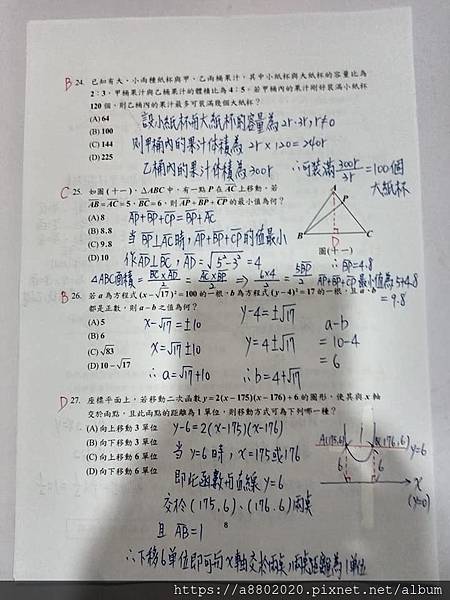 B 24. 已知有大、小兩種紙杯與甲、乙兩桶果汁,其中小紙杯與大紙杯的容量比為
2:3,甲桶果汁與乙桶果汁的體積比為4:5,若甲桶內的果汁剛好裝滿小紙杯
120個,則乙桶內的果汁最多可裝滿幾個大紙杯?
(A) 64
(B) 100
(C) 144
(D) 225
設小紙杯與大紙杯的容量為2r、3r, r≠0
則甲桶內的果汁体積為 2r×120=240r
乙桶內的果汁体積為300r ∴可裝滿 300r/3r =100個
大紙杯
C 25. 如圖(十一),△ABC中,有一點P在AC上移動,若
AB=AC=5,BC=6,則AP+BP+CP的最小值為何?
(A) 8
(B) 8.8
(C) 9.8
(D) 10
AP+BP+CP=BP+AC
當 BP⊥AC時, AP+BP+CP的值最小
作AD⊥BC, AD=√5²-3²=4
△ABC面積= BC×AD/2 = AC×BP/2 ⇒ 6×4/2 = 5BP/2 ∴BP=4.8
AP+BP+CP最小值為5+4.8
=9.8
A
P
B
D
C
圖(十一)
B 26. 若a為方程式(x-√17)²=100的一根,b為方程式(y-4)²=17的一根,且a、b
都是正數,則a-b之值為何?
(A) 5
(B) 6
(C) √83
(D) 10-√17
x-√17=±10
x=√17±10
∴a=√17+10
y-4=±√17
y=4±√17
∴b=4+√17
a-b
=10-4
=6
D 27. 座標平面上,若移動二次函數y=2(x-175)(x-176)+6的圖形,使其與x軸
交於兩點,且此兩點的距離為1單位,則移動方式可為下列哪一種?
(A) 向上移動3單位
(B) 向下移動3單位
(C) 向上移動6單位
(D) 向下移動6單位
y-6=2(x-175)(x-176)
當y=6時, x=175或176
即此函數與直線y=6
交於(175,6)、(176,6)兩点
且 AB=1
∴下移6單位即可與x軸交於兩点,兩点距離為1單位
A(175,6)
B(176,6)
y=6
6
6
x
(y=0)
8
https://a8802020.pixnet.net/album